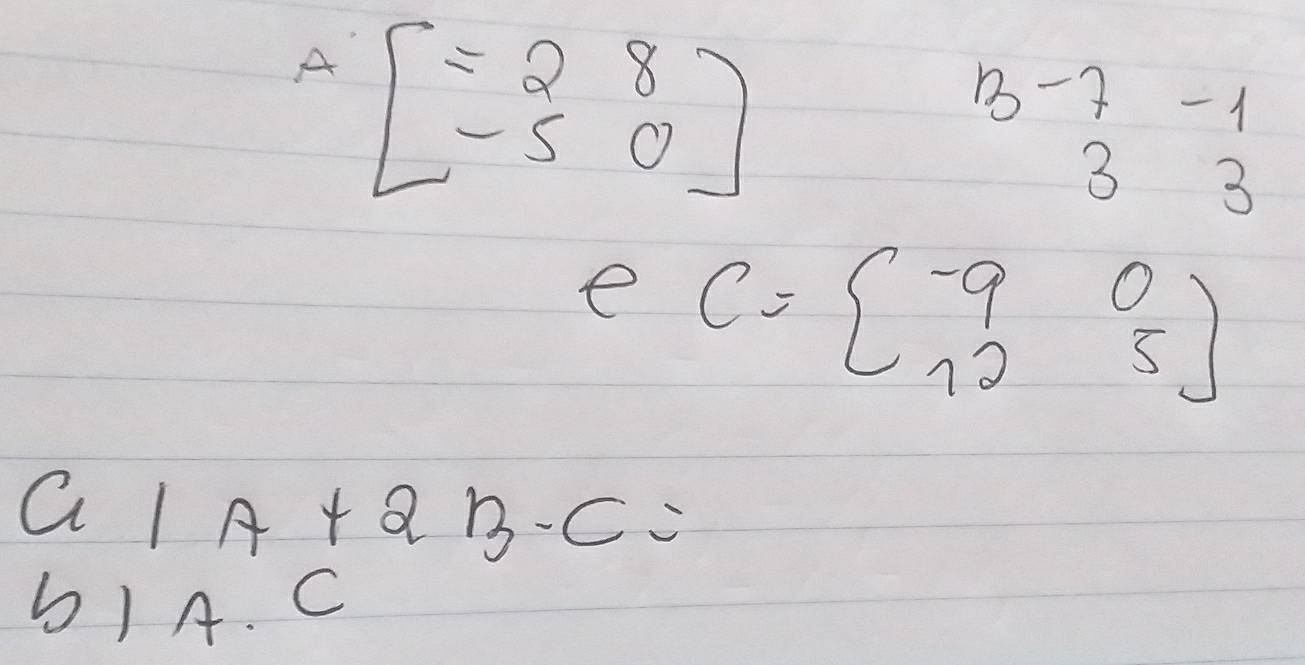 A [= 2 8
- 5 0]
B - 7 - 1
3 3
e C = [-9 0
12 5]
a | A + 2 B - C =
b ) A . C